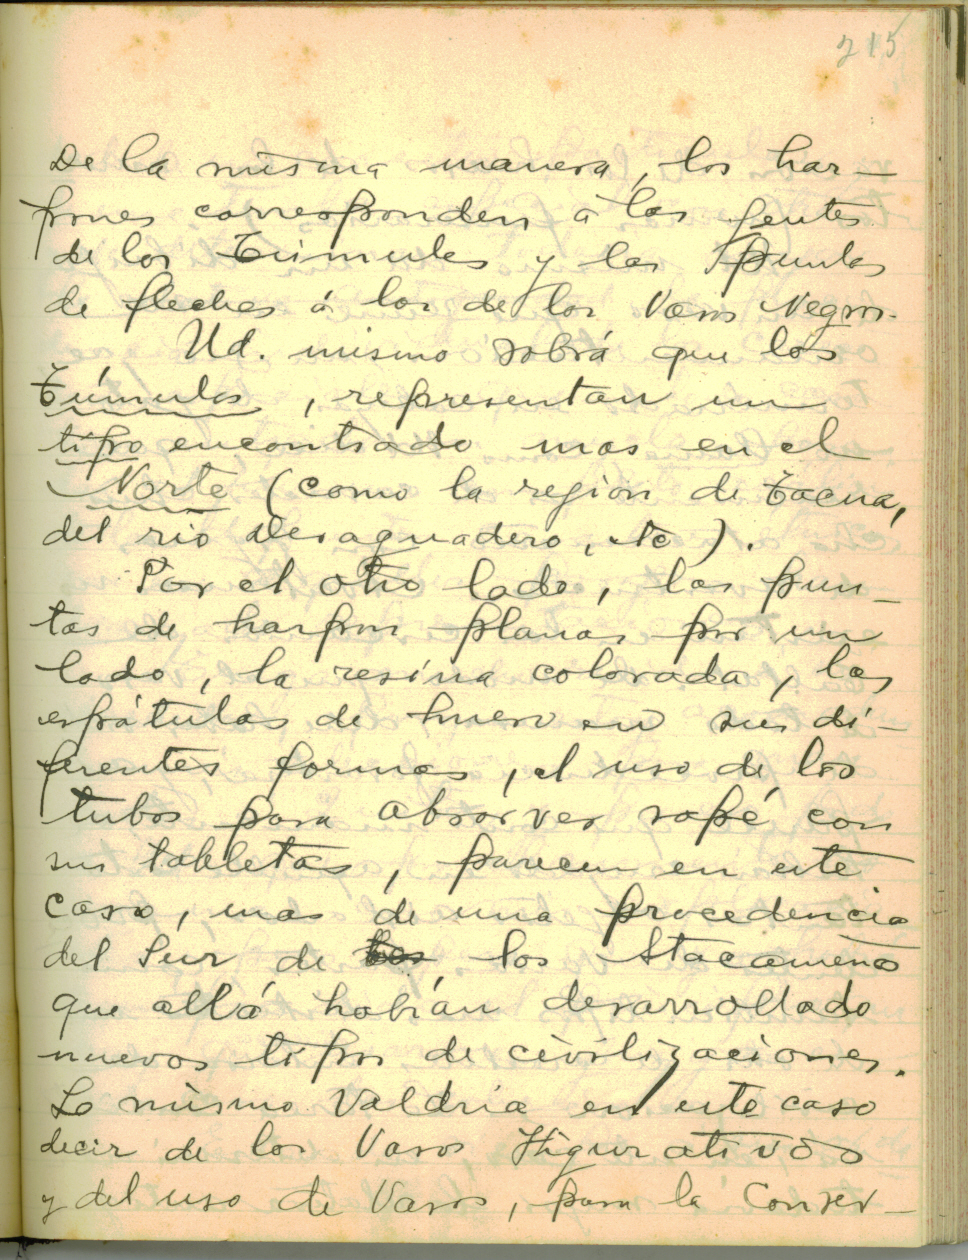 215
De la misma manera, los har-
pones corresponden á las gentes
de los Túmulos y las puntas
de flechas á los de los Vasos Negros.
Ud. mismo sabrá que los
Túmulos, representan un
tipo encontrado mas en el
Norte (como la región de Tacna,
del rio Desaguadero, etc).
Por el otro lado, las pun-
tas de harpon planas por un
lado, la resina colorada, las
espátulas de hueso en sus di-
ferentes formas, el uso de los
tubos para absorver rapé con
sus tabletas, parecen en este
caso, mas de una procedencia
del Sur de los Atacameños
que allá habían desarrollado
nuevos tipos de civilizaciones.
Lo mismo Valdria en este caso
decir de los Vasos Figurativos
y del uso de Vasos, para la Conser-